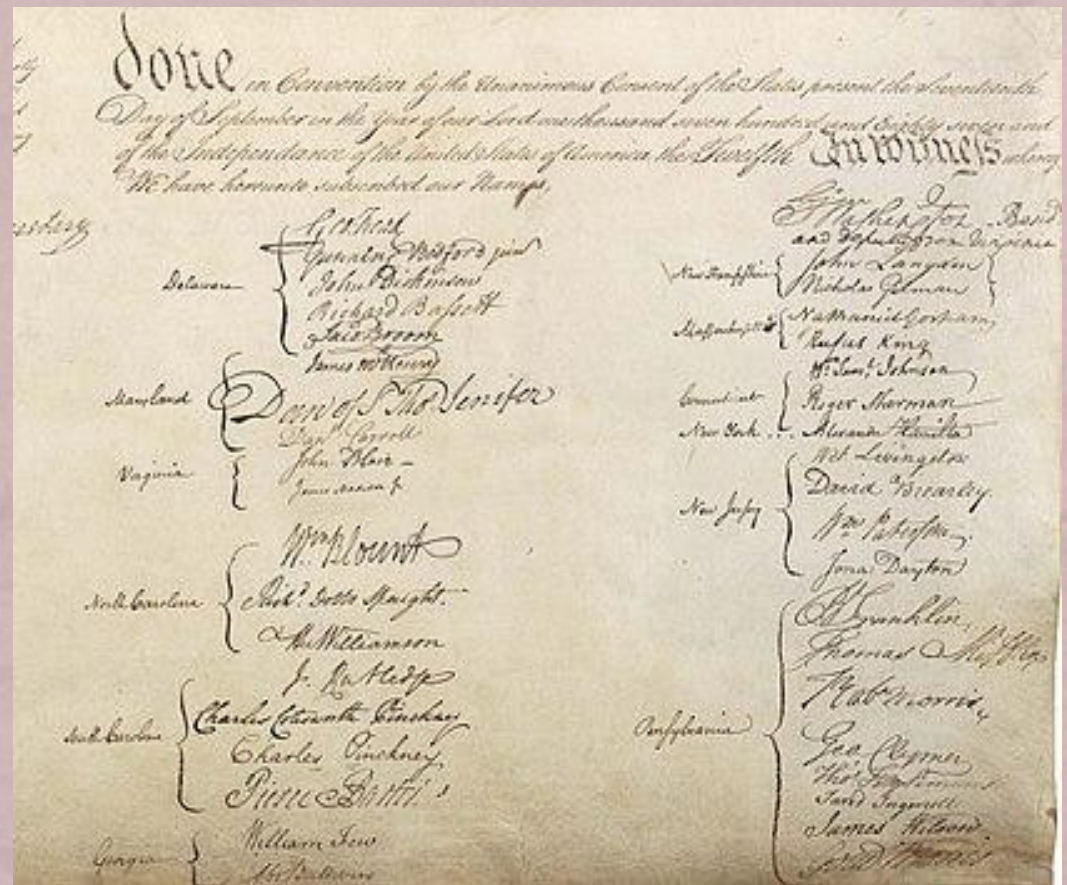 done in Convention by the Unanimous Consent of the States present the Seventeenth
Day of September in the Year of our Lord one thousand seven hundred and Eighty seven and
of the Independance of the United States of America the Twelfth In Witness whereof
We have hereunto subscribed our Names,
Delaware
Geo: Read
Gunning Bedford jun
John Dickinson
Richard Bassett
Jaco: Broom
Maryland
James McHenry
Dan of St Tho Jenifer
Danl Carroll
Virginia
John Blair –
James Madison Jr
North Carolina
Wm Blount
Richd Dobbs Spaight.
Hu Williamson
South Carolina
J. Rutledge
Charles Cotesworth Pinckney
Charles Pinckney
Pierce Butler
Georgia
William Few
Abr Baldwin
Go Washington – Presidt
and deputy from Virginia
New Hampshire
John Langdon
Nicholas Gilman
Massachusetts
Nathaniel Gorham
Rufus King
Connecticut
Wm Saml Johnson
Roger Sherman
New York ... Alexander Hamilton
New Jersey
Wil: Livingston
David Brearley.
Wm Paterson.
Jona: Dayton
Pensylvania
B Franklin
Thomas Mifflin
Robt Morris
Geo. Clymer
Thos FitzSimons
Jared Ingersoll
James Wilson.
Gouv Morris